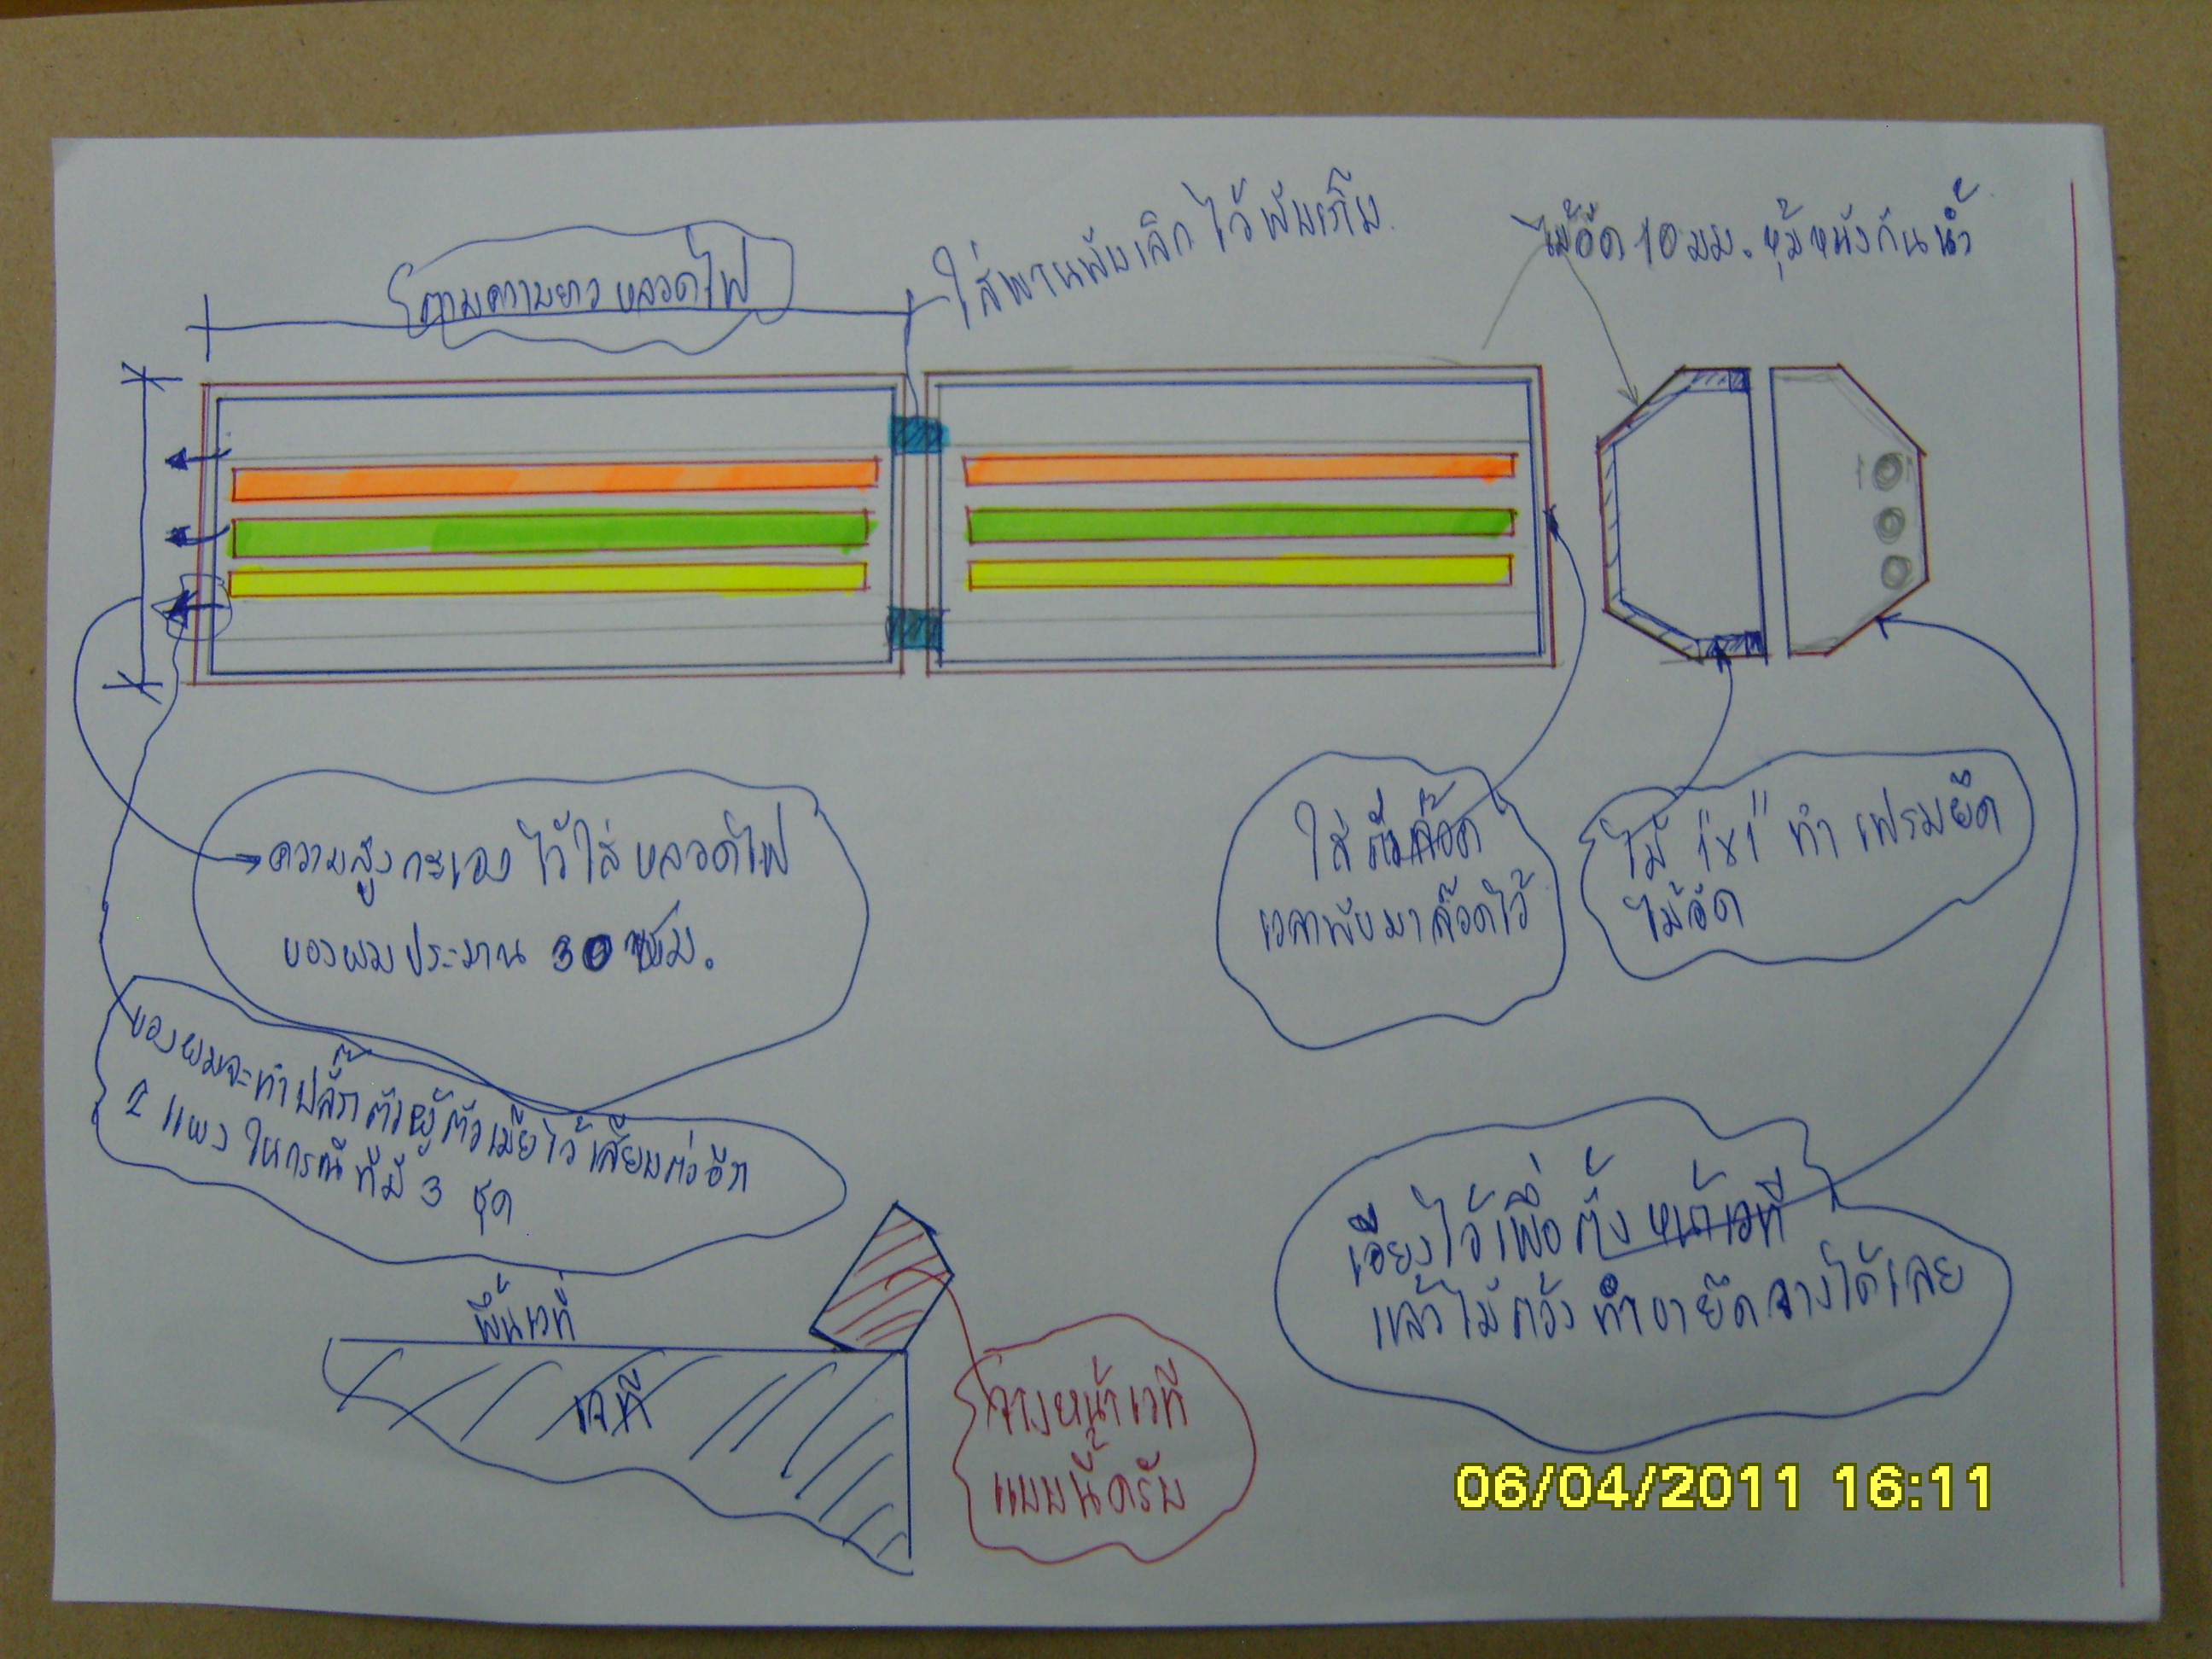 ตามความยาวหลอดไฟ
ใส่บานพับเล็กไว้พับเก็บ
ไม้อัด 10 มม. หุ้มหนังกันน้ำ
ความสูงกะเองไว้ใส่หลอดไฟ
ของผมประมาน 30 ซม.
ใส่ตัวล๊อด
เวลาพับมาล๊อดไว้
ไม้ 1"x1" ทำเฟรมยึด
ไม้อัด
ของผมจะทำปลั๊กตัวผู้ตัวเมียไว้เสียบต่ออีก
2 แผง ในกรณีที่มี 3 ชุด
เอียงไว้เพื่อตั้งหน้าเวที
แล้วไม่ต้องทำขายึดวางได้เลย
พื้นเวที
เวที
วางหน้าเวที
แบบนี้ครับ
06/04/2011 16:11